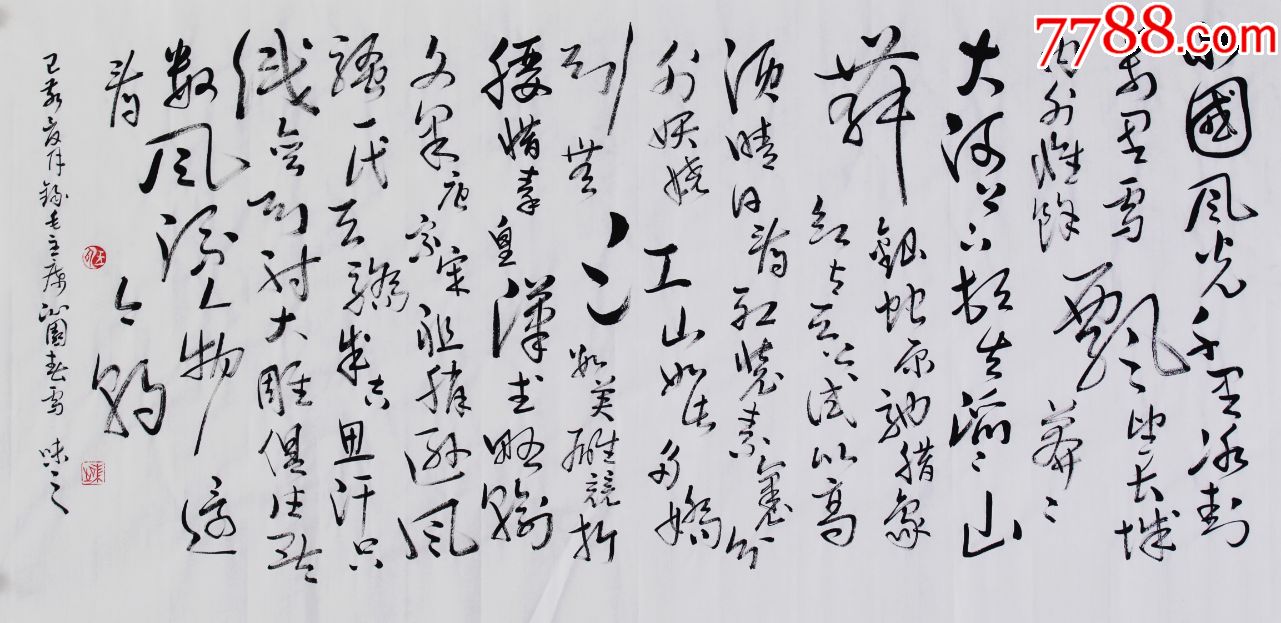 7788.com
北國風光千里冰封
萬里雪飄〻望长城
内外惟餘莽〻
大河上下頓失滔〻山
舞銀蛇原馳蜡象
欲与天公试比高
須晴日看紅裝素裹分
外妖娆江山如此多嬌
引無数英雄競折
腰惜秦皇漢武略输
文采唐宗宋祖稍逊風
骚一代天骄成吉思汗只
識弯弓射大雕俱往矣
数風流人物還
看今朝
己亥夏月録毛主席沁園春雪 味之